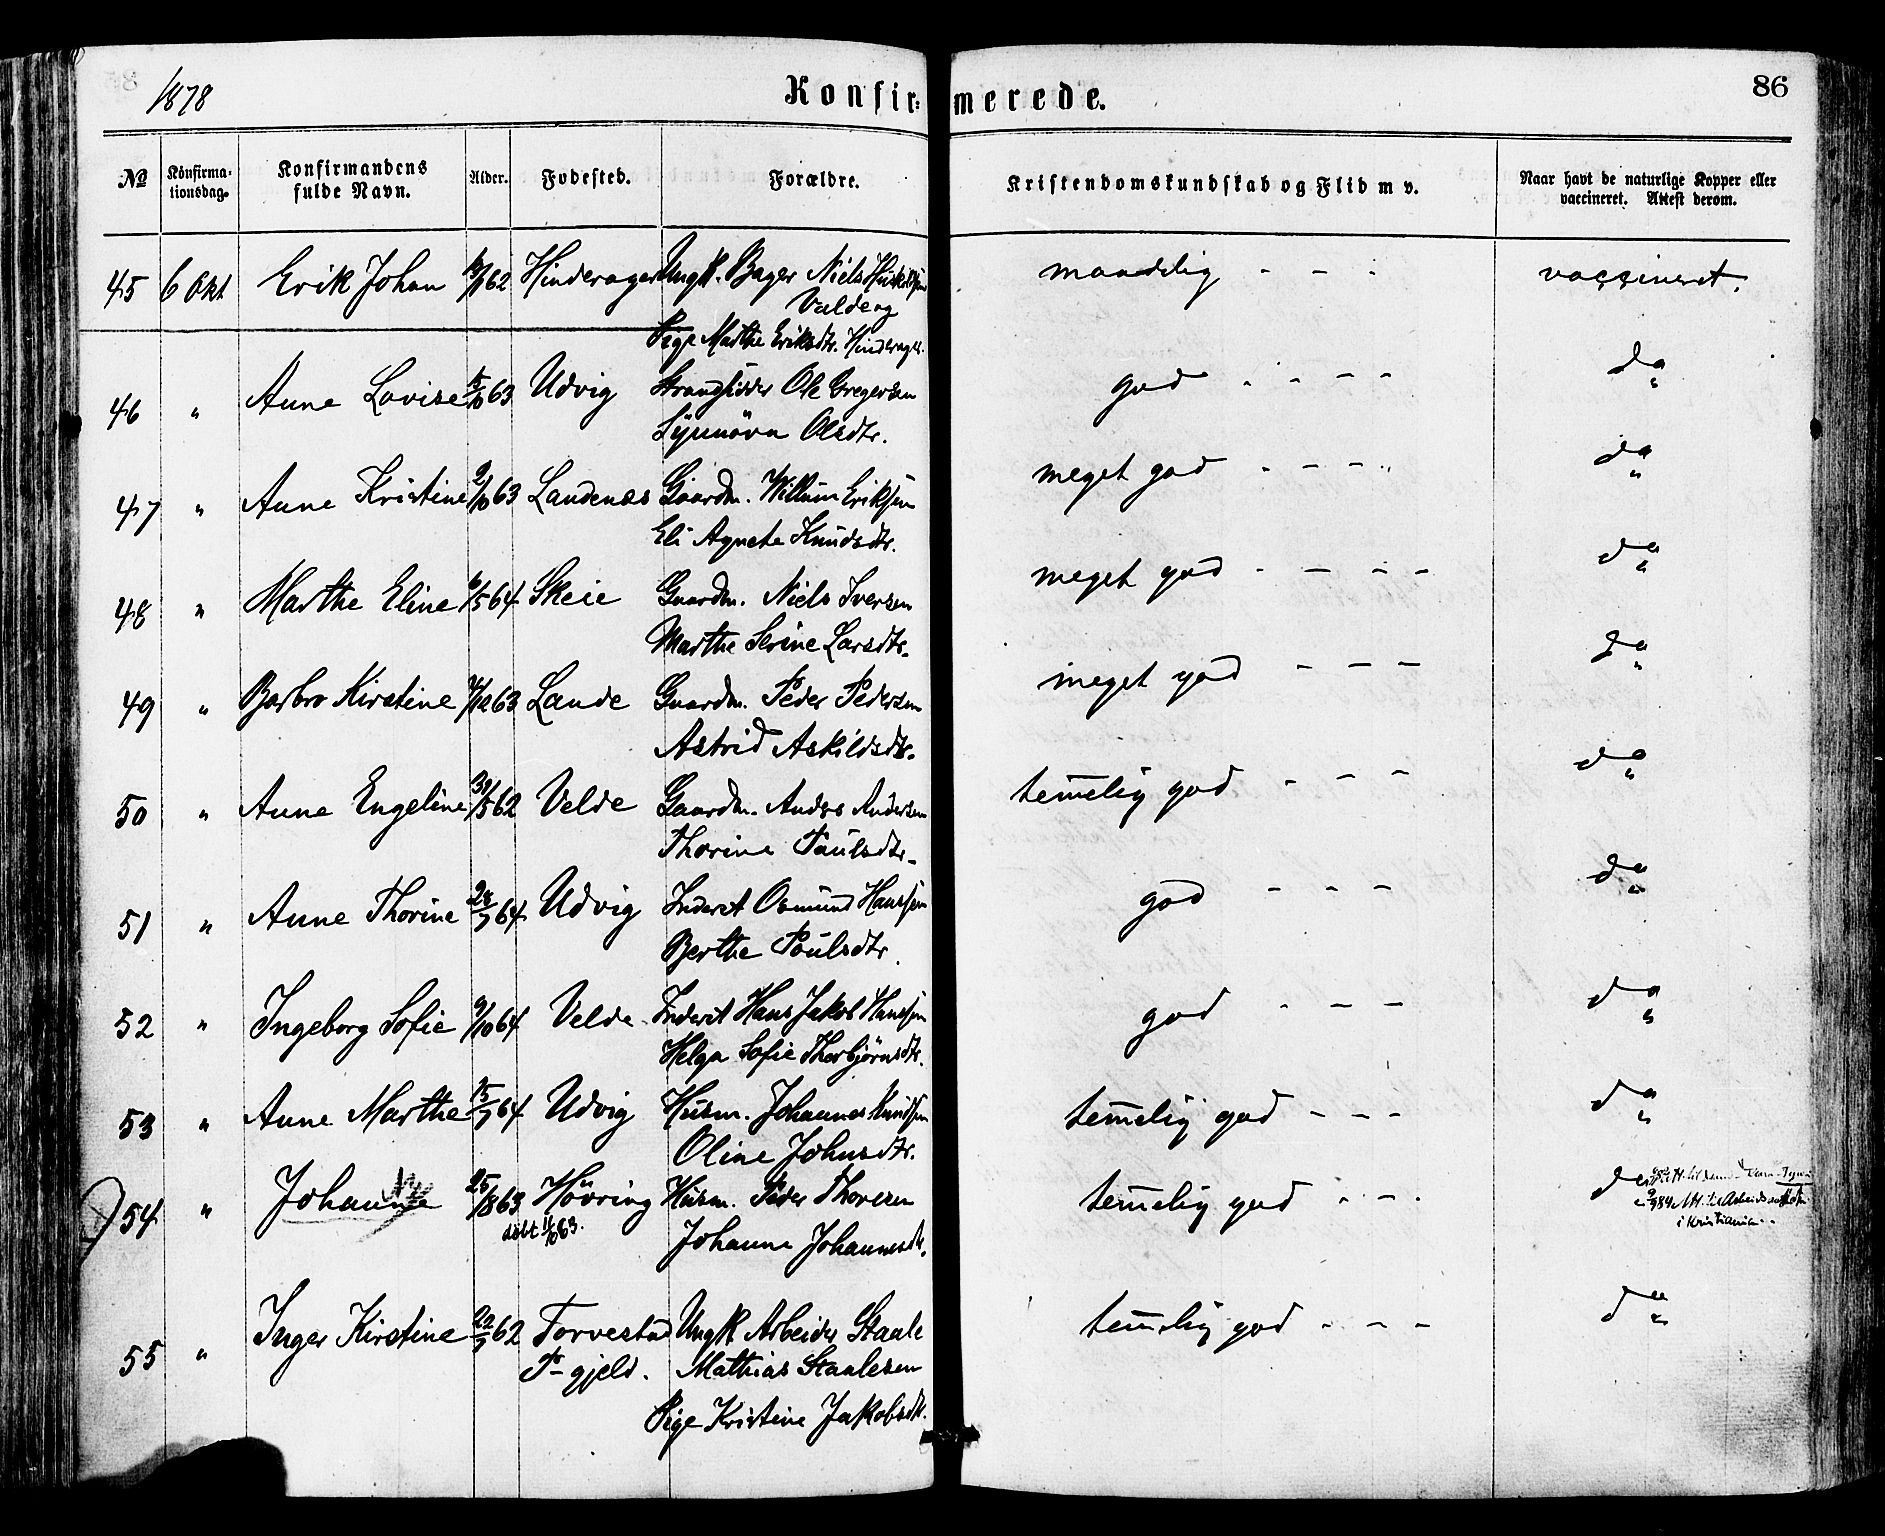 1878 Konfirmerede. 86
№ Konfirmationsdag. Konfirmandens fulde Navn. Alder. Fodested. Forældre. Kristendomskundskab og Flid m v. Naar havt de naturlige Kopper eller vaccineret. Attest derom.
45 6 Okt Erik Johan 62 Hinderager Ungk. Bager Niels maadelig - - - vaccineret.
Valde og
Pige Marthe Eriksdtr. Hinderager.
46 " Anne Lovise 63 Udvig Strandsidder Ole Gregersen god - - - - do "
Synnöva Olsdtr.
47 " Anne Kristine 2/10 63 Landenes Gaardm. Willum Eriksen meget god - - - - do "
Eli Agnete Knudsdtr.
48 " Marthe Eline 6/5 64 Skeie Gaardm. Niels Iversen meget god - - - - do "
Marthe Serine Larsdtr.
49 " Barbro Kirstine 63 Lande Gaardm. Peder Pedersen meget god - - - do "
Astrid Askildsdtr.
50 " Anne Engeline 30/5 62 Velde Gaardm. Anders Andersen temelig god - - - do "
Thorine Paulsdtr.
51 " Anne Thorine 28/7 64 Udvig Inderst Osmund Hanssen god - - - do "
Berthe Poulsdtr.
52 " Ingeborg Sofie 9/10 64 Velde Inderst Hans Jakob Hanssen god - - - do "
Helga Sofie Thorbjörnsdtr.
53 " Anne Marthe 15/7 64 Udvig Husm. Johannes Knudsen temelig god - - - do "
Oline Johnsdtr.
54 " Johanne 25/8 63 Hövring Husm. Peder Thoresen temelig god - - - do
döbt 63. Johanne Johannesdtr. Arbeidsanstalten
i Kristiania.
55 " Inger Kirstine 22/7 62 Torvestad Ungk Arbeider Staale temelig god - - - do "
P-gjeld. Mathias Staalesen
Pige Kristine Jakobsdtr.